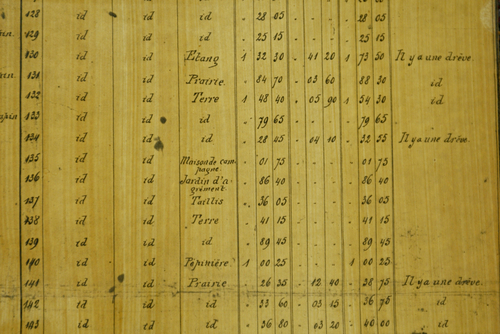 128 id id id . 28 05 . . . . 28 05
129 id id id . 25 15 . . . . 25 15
130 id id Etang 1 32 30 . 41 20 1 73 50 Il y a une drêve.
131 id id Prairie . 84 70 . 03 60 . 88 30 id
132 id id Terre 1 48 40 . 05 90 1 54 30 id
133 id id id . 79 65 . . . . 79 65
134 id id id . 28 45 . 04 10 . 32 55 Il y a une drêve.
135 id id Maison de cam= . 01 75 . . . . 01 75
pagne.
136 id id Jardin d'a= . 86 40 . . . . 86 40
grément.
137 id id Taillis . 36 05 . . . . 36 05
138 id id Terre . 41 15 . . . . 41 15
139 id id id . 89 45 . . . . 89 45
140 id id Pépinière 1 00 25 . . . 1 00 25
141 id id Prairie . 26 35 . 12 40 . 38 75 Il y a une drêve.
142 id id id . 33 60 . 03 15 . 36 75 id
143 id id id . 36 80 . 03 20 . 40 00 id